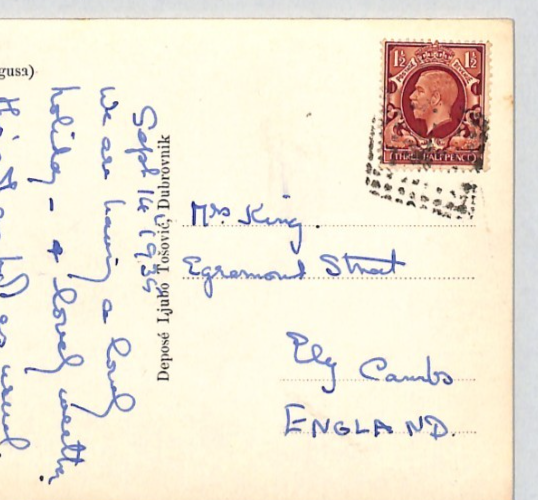 gusa)
Sept 14 1935
We are having a lovely
holiday - & lovely weather
as usual.
Deposé Ljubo Tošović, Dubrovnik
1½ 1½
POSTAGE REVENUE
THREE HALFPENCE
Mrs King.
Egremont Street
Ely Cambs
ENGLAND.